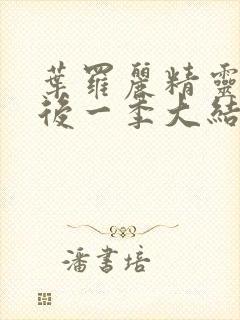 葉羅麗精靈
後一季大結
潘書培